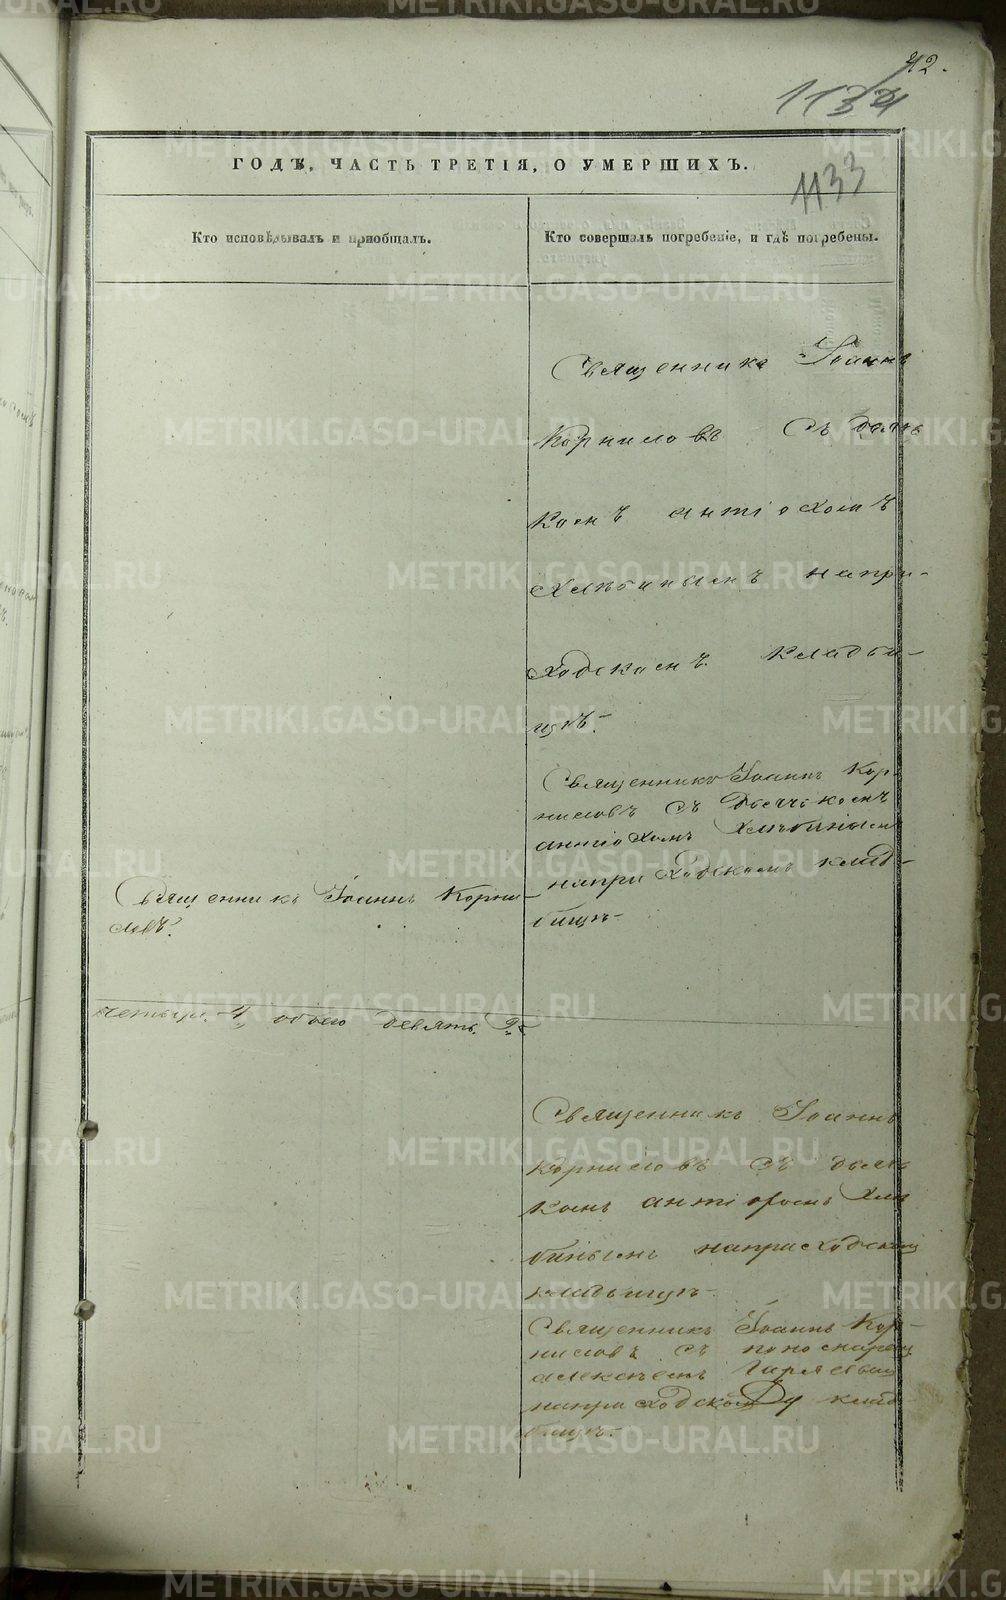 42.
1134
1133
ГОДѢ, ЧАСТЬ ТРЕТІЯ, О УМЕРШИХЪ.
Кто исповѣдывалъ и приобщалъ.
Кто совершалъ погребеніе, и гдѣ погребены.
Священникъ Іоаннъ
Корниловъ съ дьяч
комъ Антіохомъ
Хлѣбинымъ напри-
ходскомъ кладби-
щѣ.
Священникъ Іоаннъ Кор-
ниловъ съ дьячькомъ
Антіохомъ Хлѣбинымъ
наприходскомъ клад-
бищѣ.
Священникъ Іоаннъ Корни-
ловъ.
четыре 4, обоего девять 9.
Священникъ Іоаннъ
Корниловъ съ дьяч
комъ Антіохомъ Хлѣ
бинымъ наприходскомъ
кладьбищѣ.
Священникъ Іоаннъ Кор-
ниловъ съ пономаремъ
Алексѣемъ
наприходскомъ клад
бищѣ.
METRIKI.GASO-URAL.RU